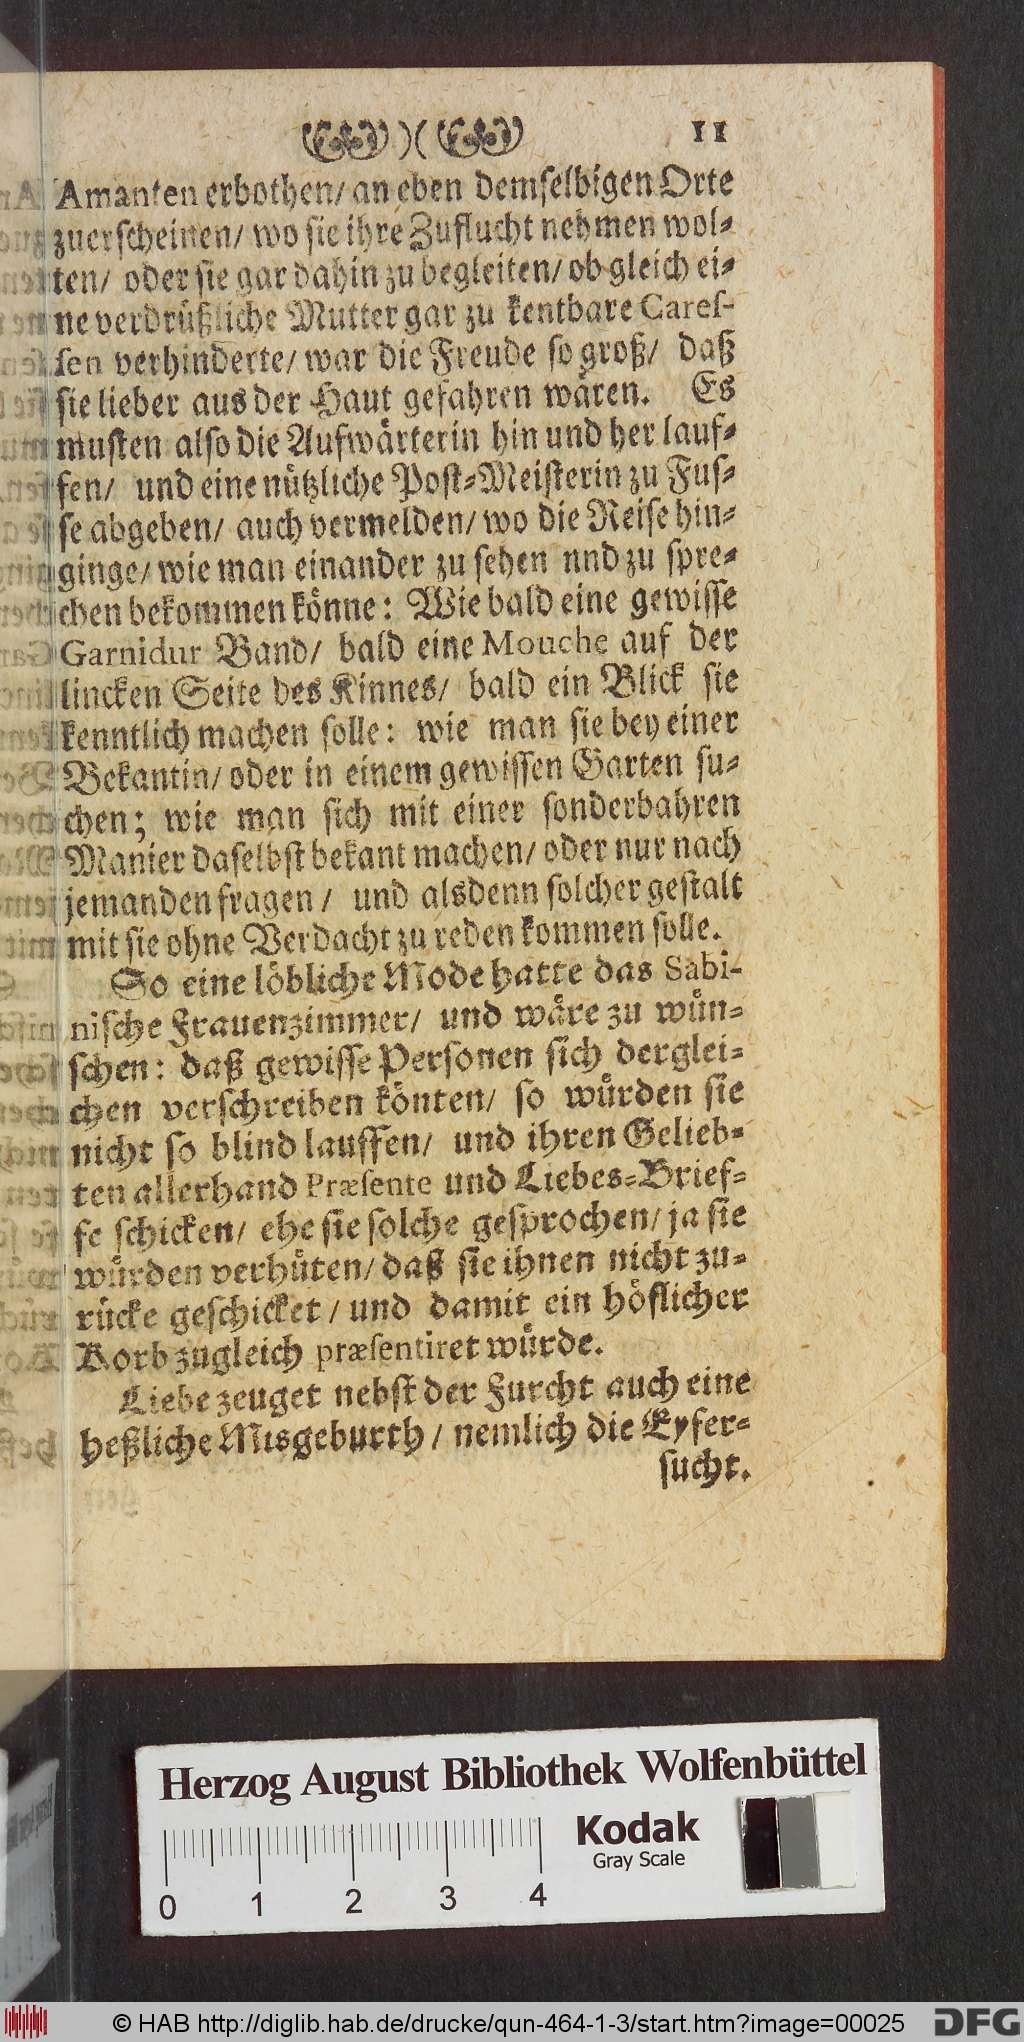 )( 11
Amanten erbothen/ an eben demſelbigen Orte
zuerſcheinen/ wo ſie ihre Zuflucht nehmen wol⸗
ten/ oder ſie gar dahin zu begleiten/ ob gleich ei⸗
ne verdrüßliche Mutter gar zu kentbare Careſ-
ſen verhinderte/ war die Freude ſo groß/ daß
ſie lieber aus der Haut gefahren wären. Es
muſten alſo die Aufwärterin hin und her lauf⸗
fen/ und eine nützliche Poſt⸗Meiſterin zu Fuſ⸗
ſe abgeben/ auch vermelden/ wo die Reiſe hin⸗
ginge/ wie man einander zu ſehen nnd zu ſpre⸗
chen bekommen könne: Wie bald eine gewiſſe
Garnidur Band/ bald eine Mouche auf der
lincken Seite des Kinnes/ bald ein Blick ſie
kenntlich machen ſolle: wie man ſie bey einer
Bekantin/ oder in einem gewiſſen Garten ſu⸗
chen; wie man ſich mit einer ſonderbahren
Manier daſelbſt bekant machen/ oder nur nach
jemanden fragen/ und alsdenn ſolcher geſtalt
mit ſie ohne Verdacht zu reden kommen ſolle.
So eine löbliche Mode hatte das Sabi-
niſche Frauenzimmer/ und wäre zu wün⸗
ſchen: daß gewiſſe Perſonen ſich derglei⸗
chen verſchreiben könten/ ſo würden ſie
nicht ſo blind lauffen/ und ihren Gelieb⸗
ten allerhand Præſente und Liebes⸗Brief⸗
fe ſchicken/ ehe ſie ſolche geſprochen/ ja ſie
würden verhüten/ daß ſie ihnen nicht zu⸗
rücke geſchicket/ und damit ein höflicher
Korb zugleich præſentiret würde.
Liebe zeuget nebſt der Furcht auch eine
heßliche Misgeburth/ nemlich die Eyfer⸗
ſucht.
Herzog August Bibliothek Wolfenbüttel
Kodak
Gray Scale
0 1 2 3 4
© HAB http://diglib.hab.de/drucke/qun-464-1-3/start.htm?image=00025
DFG